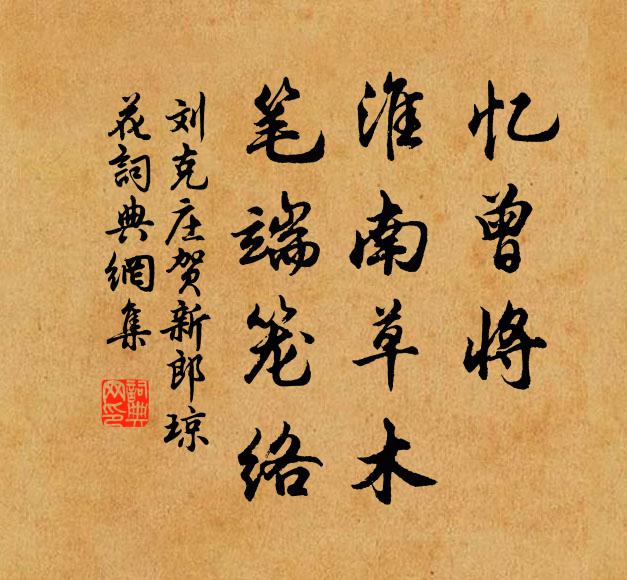 忆曾将
淮南草木
笔端笼络
刘克庄贺新郎琼
花詞典網集
詞典网印